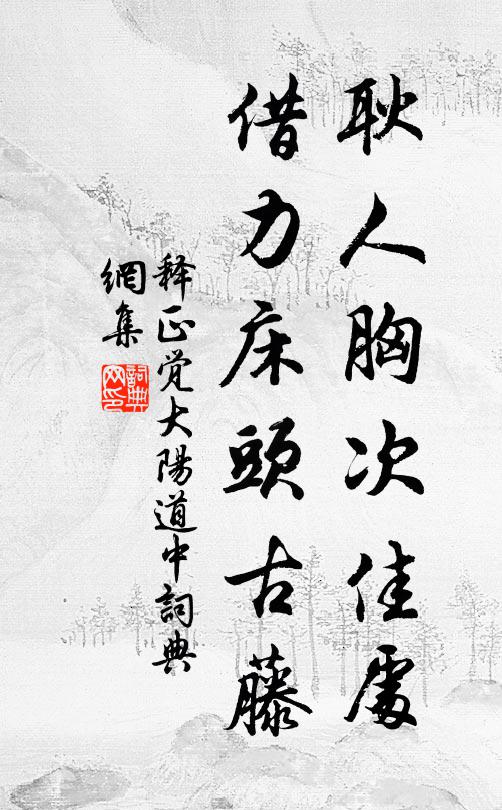 耿人胸次佳處
借力床頭古藤
釋正觉大陽道中詞典
網集
詞典網印